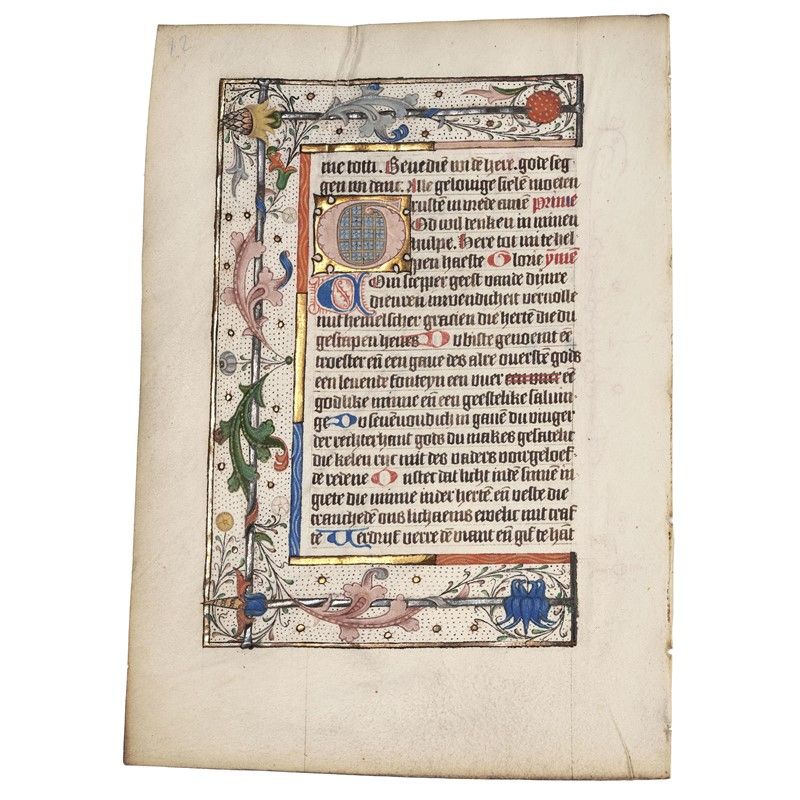 12
me totti. Benediē wi dē here. gode seg
gen wi danc. Alle gelouige sielē moeten
rusten in vrede amē prime
God wil denken in minen
hulpe. Here tot mi te hel
pen haeste Glorie ymē
Com scepper geest vande dijnre
dienren inwendicheit vervolle
mit hemelscher gracien die hertē die du
gescapen heues Du biste genoemt ee
troester eñ een gaue des alre ouerstē gods
een leuende fonteyn een vuer een vuer eñ
godlike minne eñ een geestelike saluin
ge Du seuenvoudich in gauē du vinger
der rechter hant gods du makes gesatelt
die kelen ryc mit des vaders vorgeloef
de redene Onster dat licht indē sinnē in
giete die minne in der hertē. eñ veste die
cranchedē ons lichaems ewelt mit craf
te Verdrijf verre dē viant eñ gif te hāt